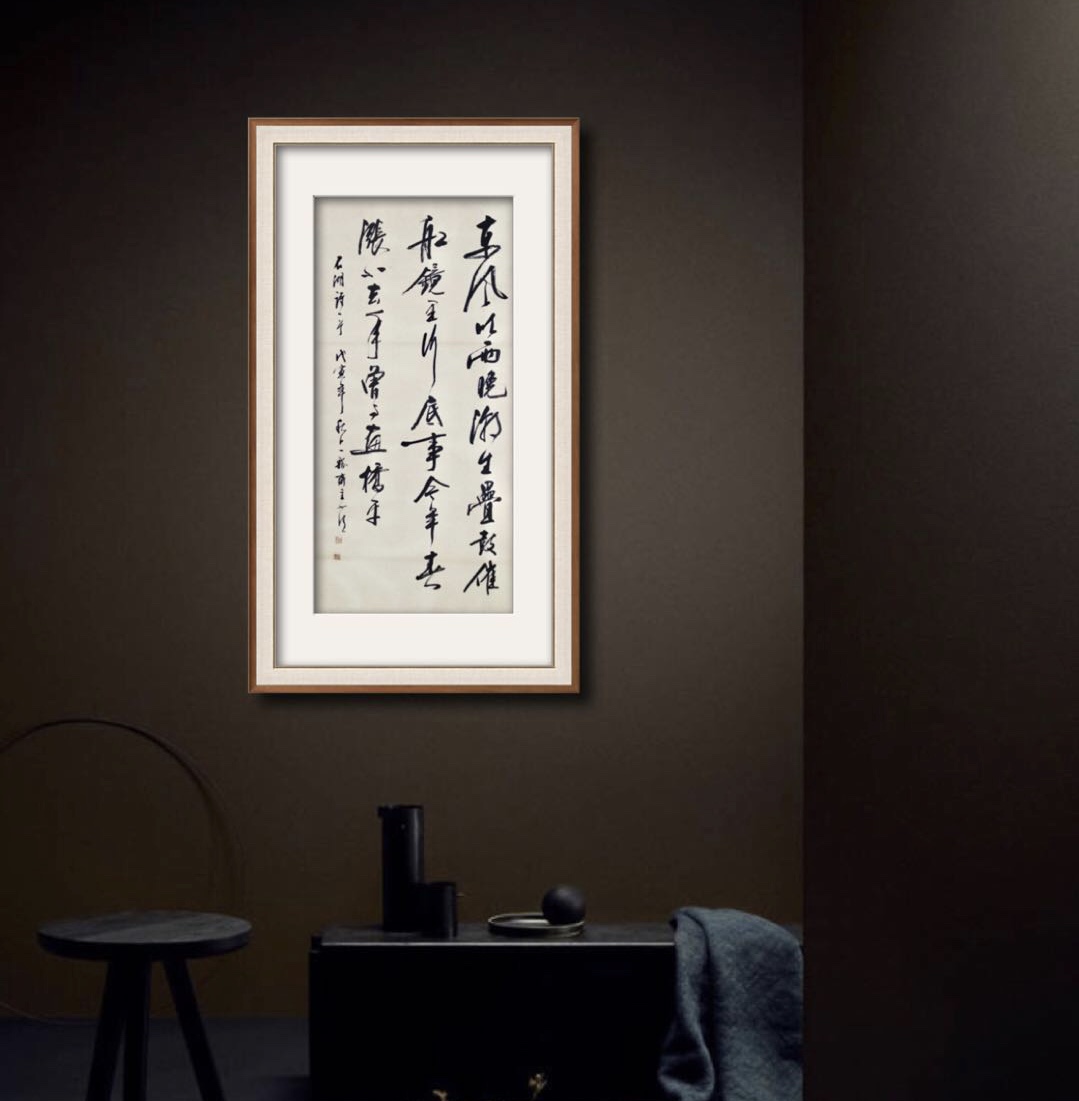 東風吹雨晚潮生疊鼓催
船鏡里行底事今年春
漲小去年曾与畫橋平
石湖詩一首 戊寅年秋